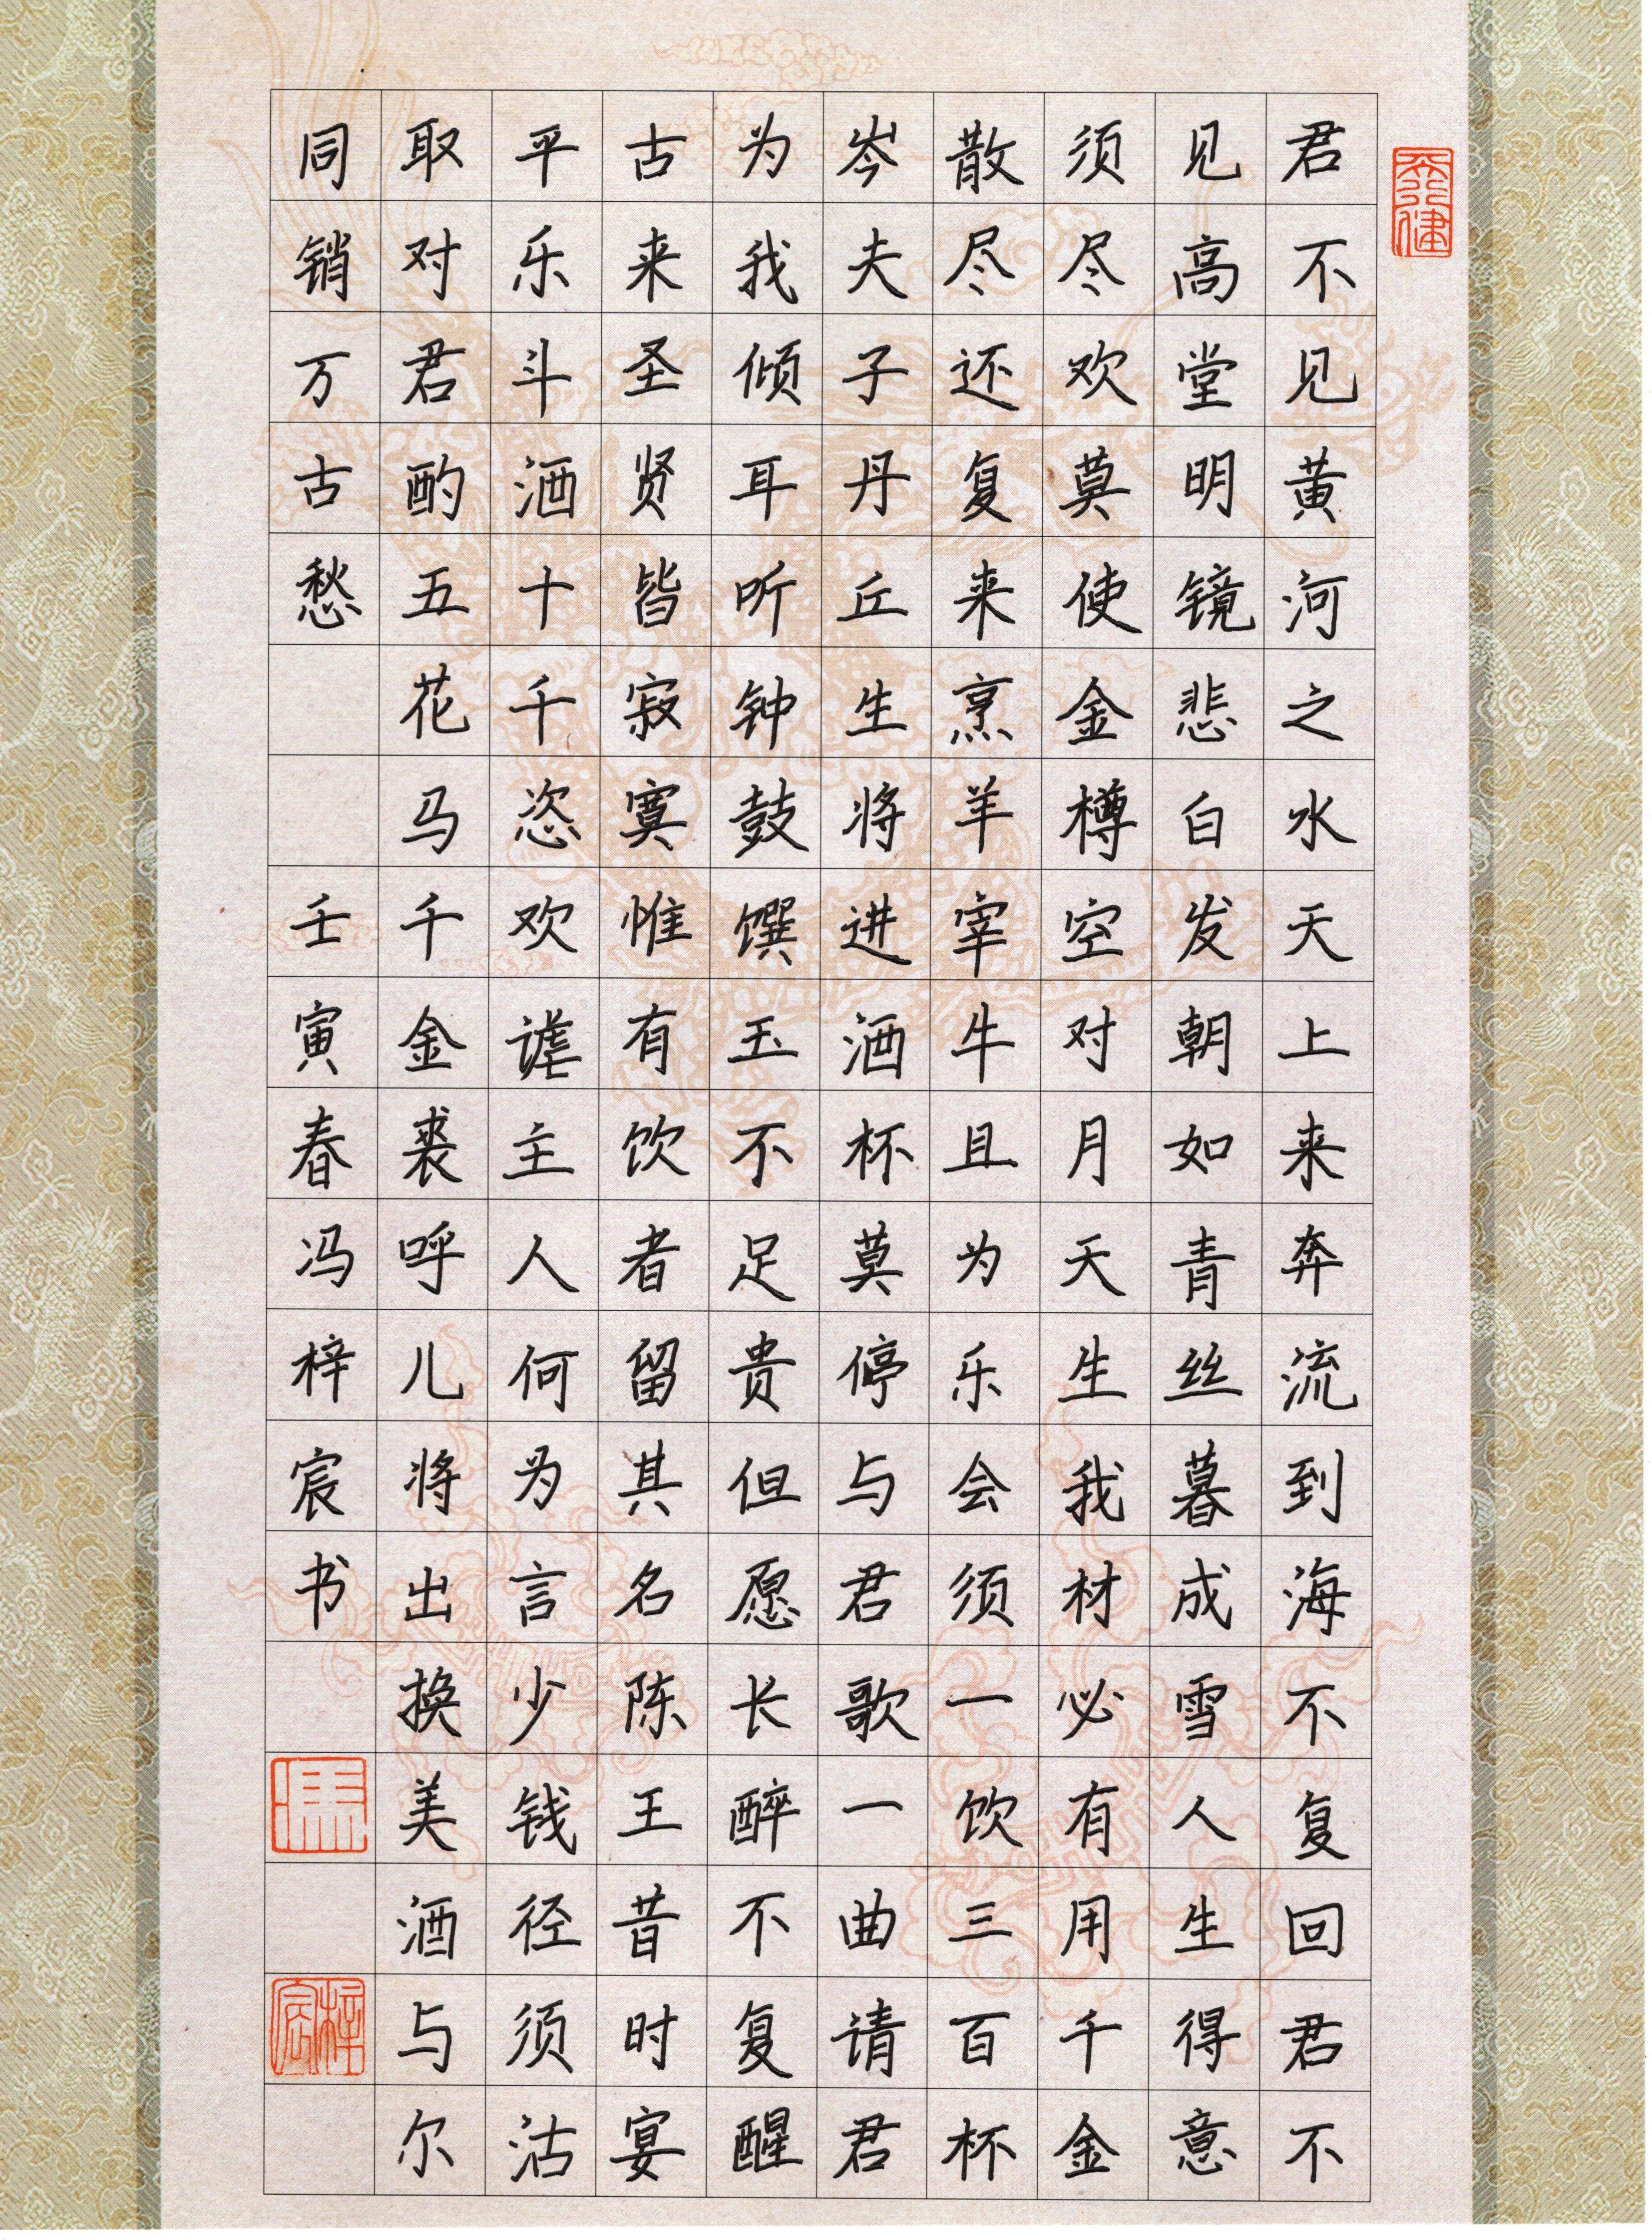 天行健
君不见黄河之水天上来奔流到海不复回君不
见高堂明镜悲白发朝如青丝暮成雪人生得意
须尽欢莫使金樽空对月天生我材必有用千金
散尽还复来烹羊宰牛且为乐会须一饮三百杯
岑夫子丹丘生将进酒杯莫停与君歌一曲请君
为我倾耳听钟鼓馔玉不足贵但愿长醉不复醒
古来圣贤皆寂寞惟有饮者留其名陈王昔时宴
平乐斗酒十千恣欢谑主人何为言少钱径须沽
取对君酌五花马千金裘呼儿将出换美酒与尔
同销万古愁 壬寅春冯梓宸书
冯
梓宸